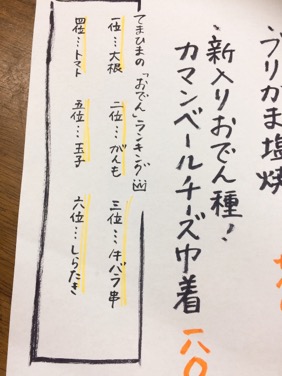 ぶりかま塩焼
・新入りおでん種・
カマンベールチーズ巾着 一八〇
てまひまの「おでん」ランキング
一位…大根
二位…がんも
三位…牛バラ串
四位…トマト
五位…玉子
六位…しらたき